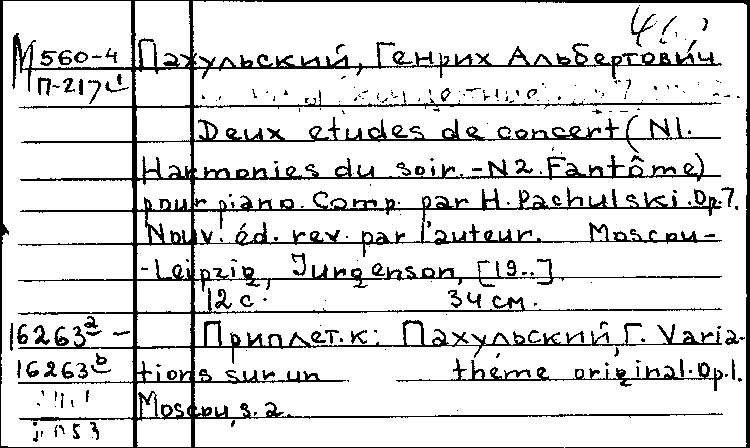 М 560-4 Пахульский, Генрих Альбертович
П-217
Deux etudes de concert (N1.
Harmonies du soir. - N2. Fantôme)
pour piano. Comp. par H. Pachulski. Op. 7.
Nouv. éd. rev. par l'auteur. Moscou-
-Leipzig, Jurgenson, [19..].
12 с. 34 см.
16263a - Приплет. к: Пахульский, Г. Varia-
16263b tions sur un thème original. Op. 1.
Moscou, s. a.